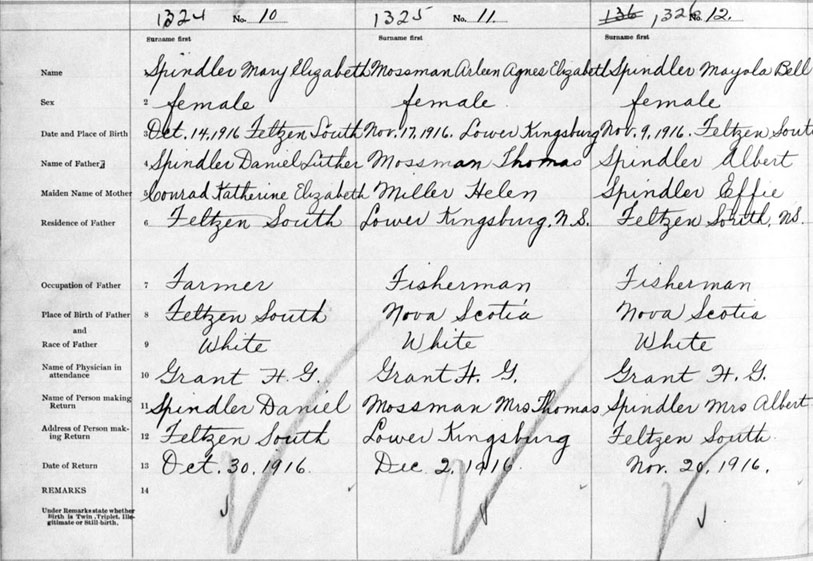 1324 No. 10 1325 No. 11 136 1326 No. 12.
Surname first Surname first Surname first
Name Spindler Mary Elizabeth Mossman Arleen Agnes Elizabeth Spindler Mayola Bell
Sex 2 female female. female
Date and Place of Birth 3 Oct. 14, 1916 Feltzen South Nov. 17, 1916. Lower Kingsburg Nov. 9, 1916. Feltzen South
Name of Father 4 Spindler Daniel Luther Mossman Thomas Spindler Albert
Maiden Name of Mother 5 Conrad Katherine Elizabeth Miller Helen Spindler Effie
Residence of Father 6 Feltzen South Lower Kingsburg, N.S. Feltzen South, N.S.
Occupation of Father 7 Farmer Fisherman Fisherman
Place of Birth of Father 8 Feltzen South Nova Scotia Nova Scotia
and
Race of Father 9 White White White
Name of Physician in
attendance 10 Grant H. G. Grant H. G. Grant H. G.
Name of Person making
Return 11 Spindler Daniel Mossman Mrs Thomas Spindler Mrs Albert
Address of Person mak-
ing Return 12 Feltzen South Lower Kingsburg Feltzen South
Date of Return 13 Oct. 30, 1916. Dec 2, 1916. Nov. 20, 1916.
REMARKS 14
Under Remarks state whether
Birth is Twin, Triplet, Ille-
gitimate or Still-birth.